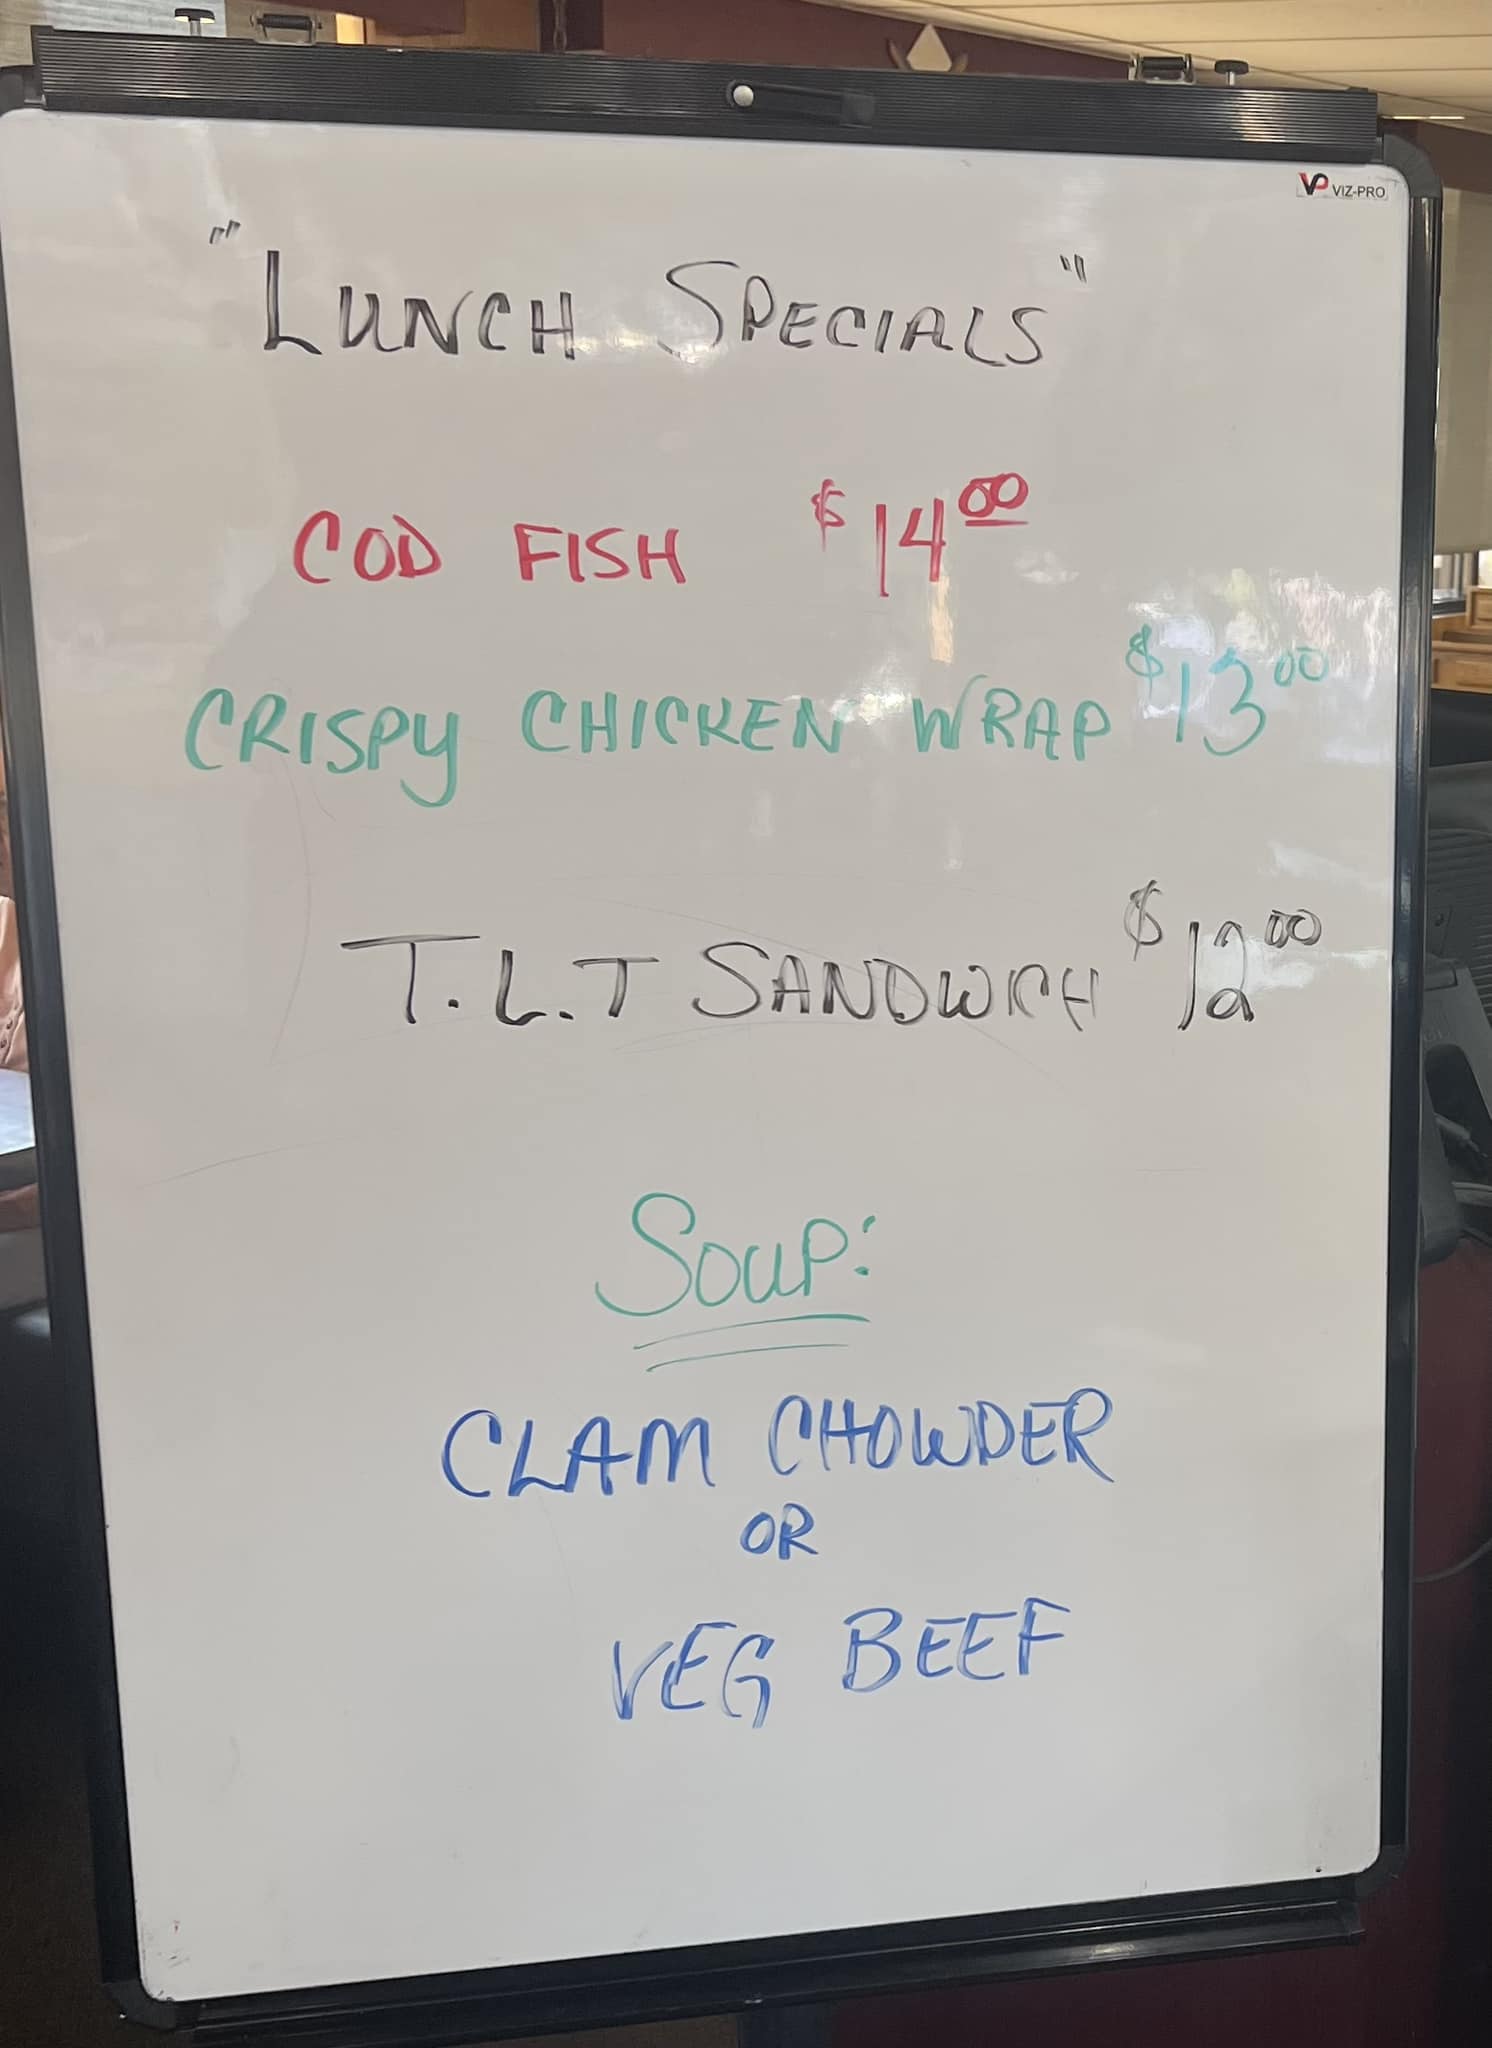 VP VIZ-PRO
"LUNCH SPECIALS"
COD FISH $14.00
CRISPY CHICKEN WRAP $13.00
T.L.T SANDWICH $12.00
SOUP:
CLAM CHOWDER
OR
VEG BEEF